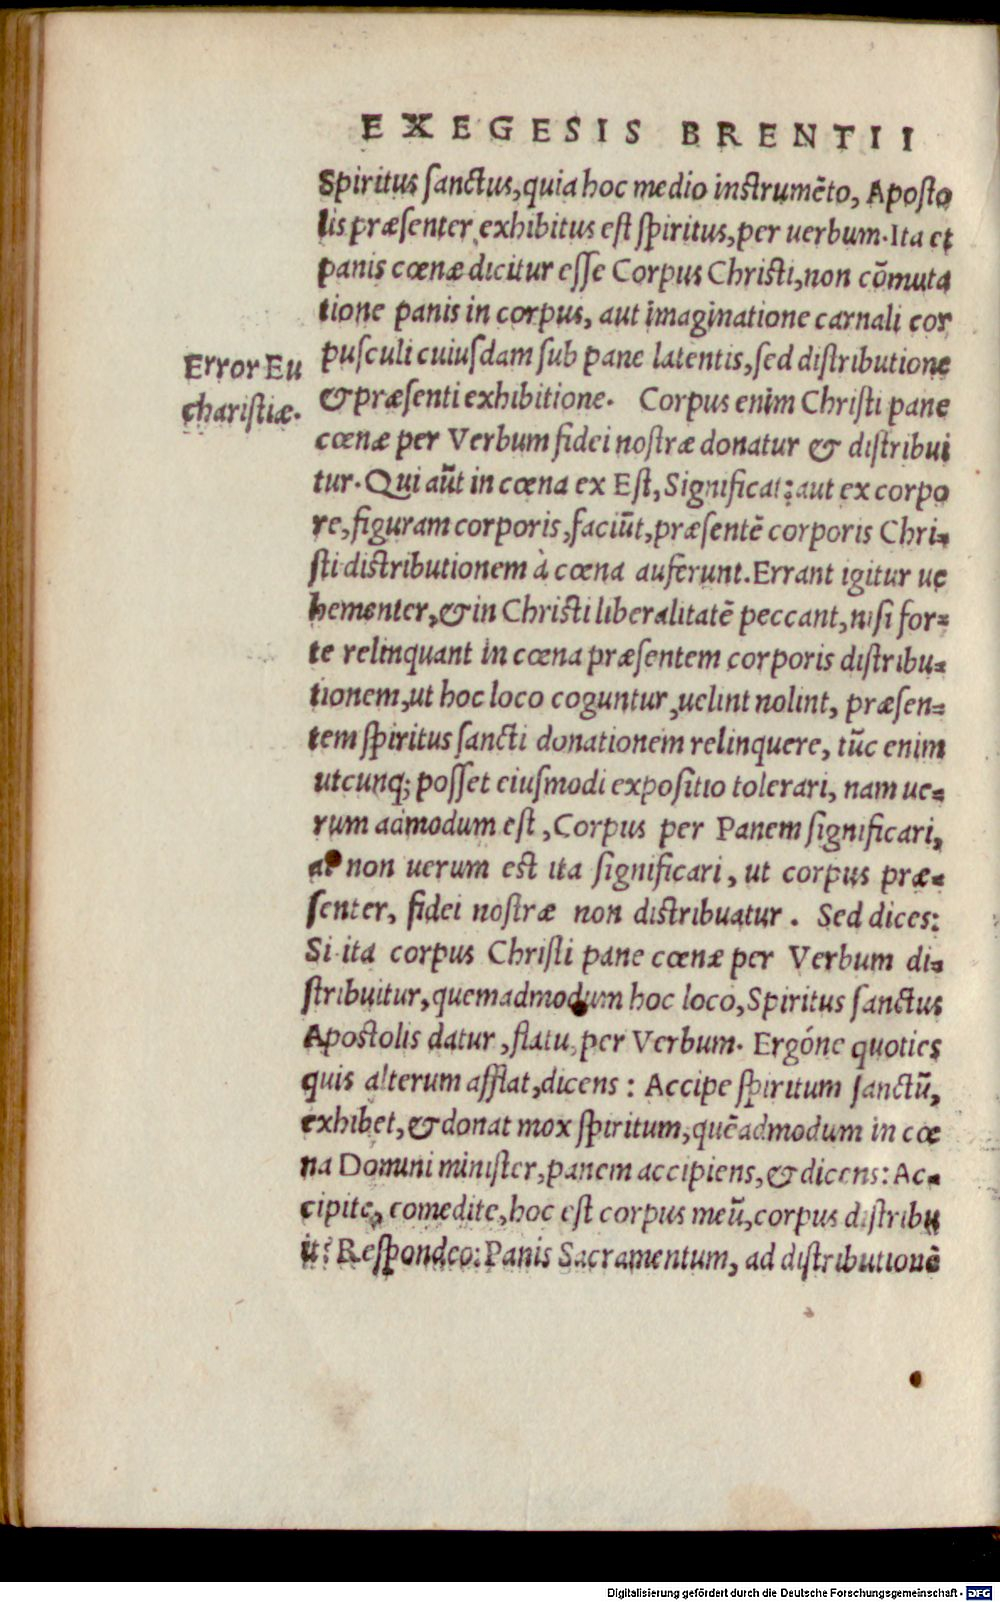 EXEGESIS BRENTII
Spiritus ſanctus, quia hoc medio inſtrumẽto, Apoſto
lis præſenter exhibitus eſt ſpiritus, per uerbum. Ita et
panis cœnæ dicitur eſſe Corpus Chriſti, non cõmuta
tione panis in corpus, aut imaginatione carnali cor
puſculi cuiuſdam ſub pane latentis, ſed diſtributione
& præſenti exhibitione. Corpus enim Chriſti pane
cœnæ per Verbum fidei noſtræ donatur & diſtribui
tur. Qui aũt in cœna ex Eſt, Significat: aut ex corpo
re, figuram corporis, faciũt, præſentẽ corporis Chri-
ſti diſtributionem à cœna auferunt. Errant igitur ue
hementer, & in Chriſti liberalitatẽ peccant, niſi for-
te relinquant in cœna præſentem corporis diſtribu-
tionem, ut hoc loco coguntur, uelint nolint, præſen-
tem ſpiritus ſancti donationem relinquere, tũc enim
utcunq; poſſet eiuſmodi expoſitio tolerari, nam ue-
rum admodum eſt, Corpus per Panem ſignificari,
at non uerum eſt ita ſignificari, ut corpus præ-
ſenter, fidei noſtræ non diſtribuatur. Sed dices:
Si ita corpus Chriſti pane cœnæ per Verbum di-
ſtribuitur, quemadmodum hoc loco, Spiritus ſanctus
Apoſtolis datur, flatu, per Verbum. Ergóne quoties
quis alterum afflat, dicens: Accipe ſpiritum ſanctũ,
exhibet, & donat mox ſpiritum, quẽadmodum in cœ
na Domini miniſter, panem accipiens, & dicens: Ac-
cipite, comedite, hoc eſt corpus meũ, corpus diſtribu
it? Reſpondeo: Panis Sacramentum, ad diſtributionẽ
Error Eu
chariſtiæ.
Digitalisierung gefördert durch die Deutsche Forschungsgemeinschaft - DFG